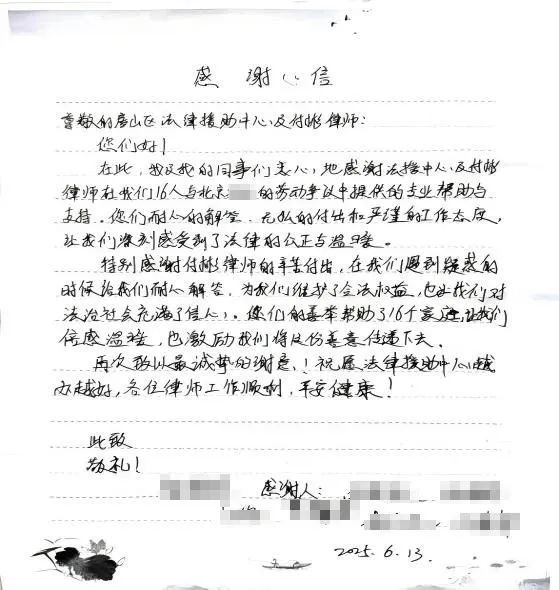 感谢心信
尊敬的房山区法律援助中心及付彬律师：
您们好！
在此，我及我的同事们衷心地感谢法援中心及付彬
律师在我们16人与北京 的劳动争议中提供的专业帮助与
支持。您们耐心的解答、无私的付出和严谨的工作态度，
让我们深刻感受到了法律的公正与温暖。
特别感谢付彬律师的辛苦付出，在我们遇到疑惑的
时候给我们耐心解答，为我们维护了合法权益，也让我们对
法治社会充满了信心。您们的善举帮助了16个家庭让我们
倍感温暖，也激励我们将这份善意传递下去。
再次致以最诚挚的谢意！祝愿法律援助中心越
办越好，各位律师工作顺利，平安健康！
此致
敬礼！
感谢人：
2025.6.13.